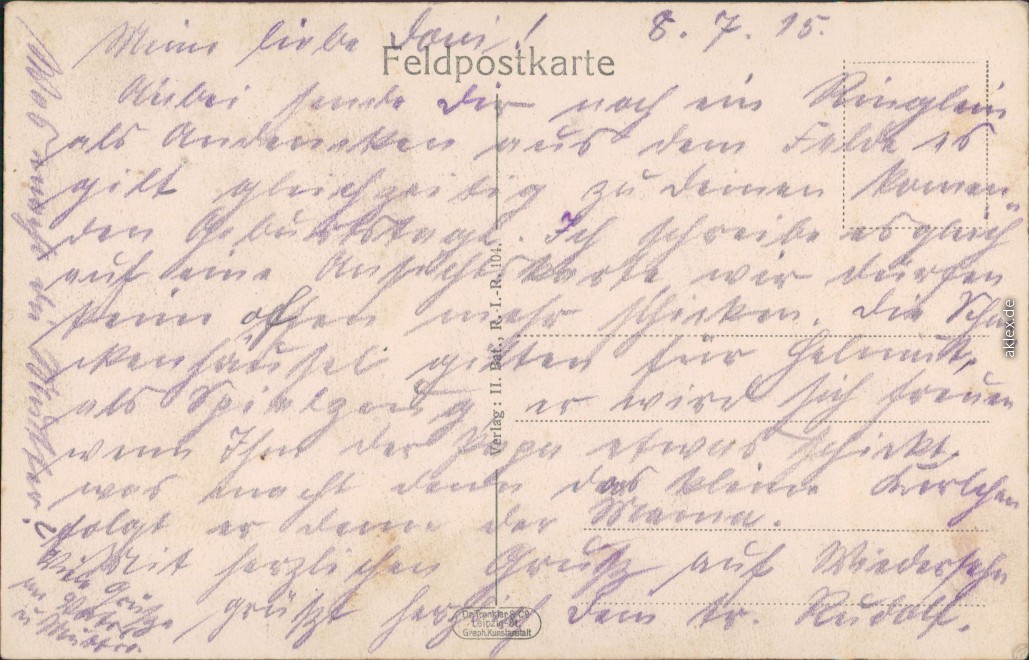 8. 7. 15.
Meine liebe Dovi!
Feldpostkarte
Anbei sende Dir noch ein Ringlein
als Andenken aus dem Felde es
gilt gleichzeitig zu deinen komen-
den Geburtstage. Ich schreibe es gleich
auf eine Ansichtskarte wir dürfen
keine offen mehr schicken. Die Schne-
ckenhäusel gelten für Helmut,
als Spielzeug er wird sich freuen
wenn Ihm der Papa etwas schickt.
was macht denn das kleine Kerlchen
folgt er denn der Mama.
Mit herzlichen Gruß auf Wiedersehn
grüßt herzlich dein tr. Rudolf.
Viele Grüße
an Vater
u Mutter.
Was macht der
Verlag: II. Bat., R.-I.-R. 104.
Dr. Trenkler & Co
Leipzig-St.
Graph. Kunstanstalt
aklex.de